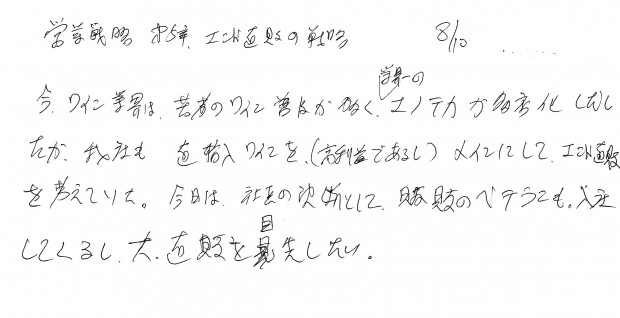 営業戦略 第5章、エンド直販の戦略 8/10
業界一の
今、ワイン業界は、若者のワイン普及が多く、エノテカが多角化しだし
たが、我社も 直輸入ワインを、(高利益であるし)メインにして、エンド直販
を考えていた。今日は、社長の決断として、販のベテランも、入社
してくるし、大、直販を目 先したい。